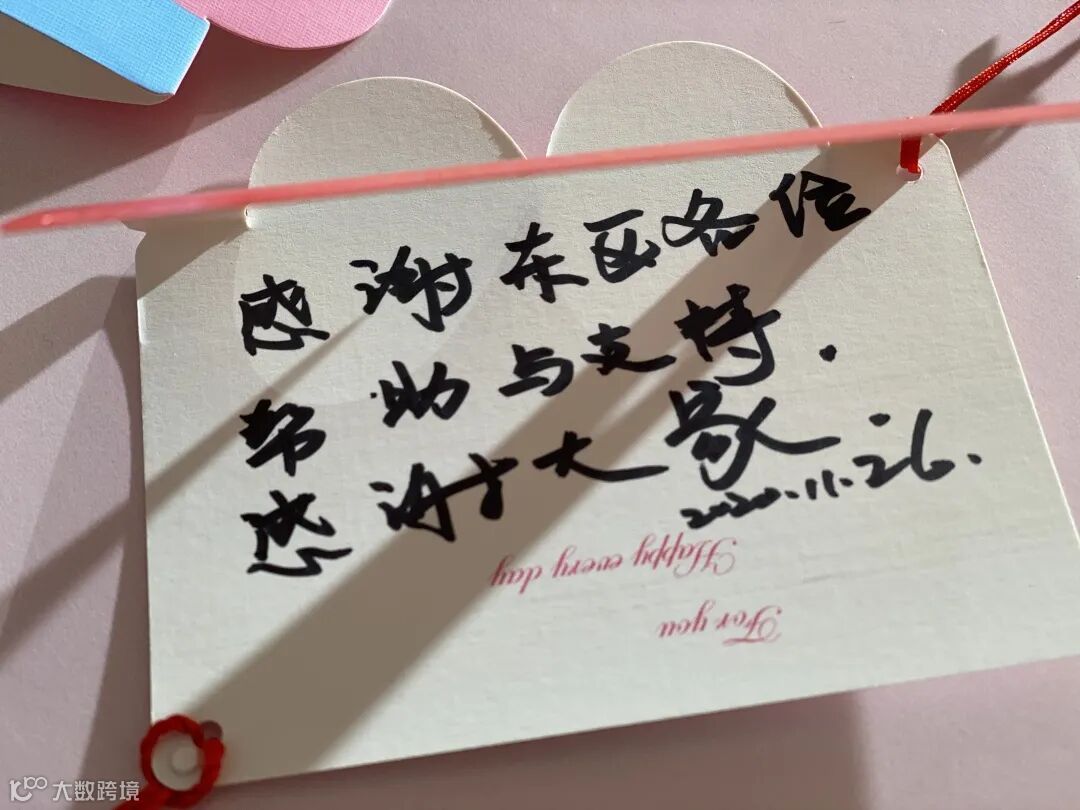 感谢东区各位
帮助与支持.
感谢大家
2020.11.26.
Happy every day
For you
大数跨境